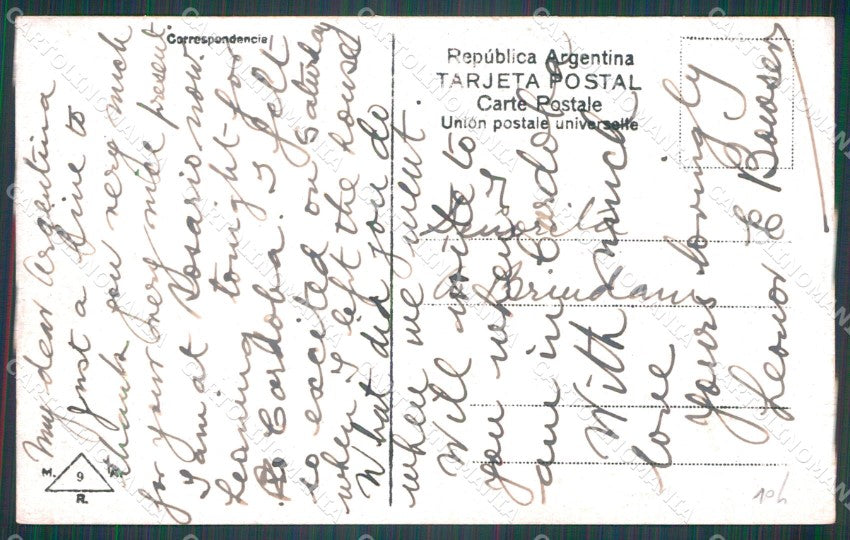 Correspondencia
My dear Argentina
Just a line to
thank you very much
for your very nice present.
I am at Rosario now
Leaving tonight for
Cordoba. I felt
so excited on Saturday
when I left the house
What did you do
when we went.
Will write to
you when I
am in Cordoba
With much
love
yours lovingly
Leonor E Bowser
República Argentina
TARJETA POSTAL
Carte Postale
Unión postale universelle
Señorita
A.
M. 9 A.
R.
10h
CARTOLINOMANIA